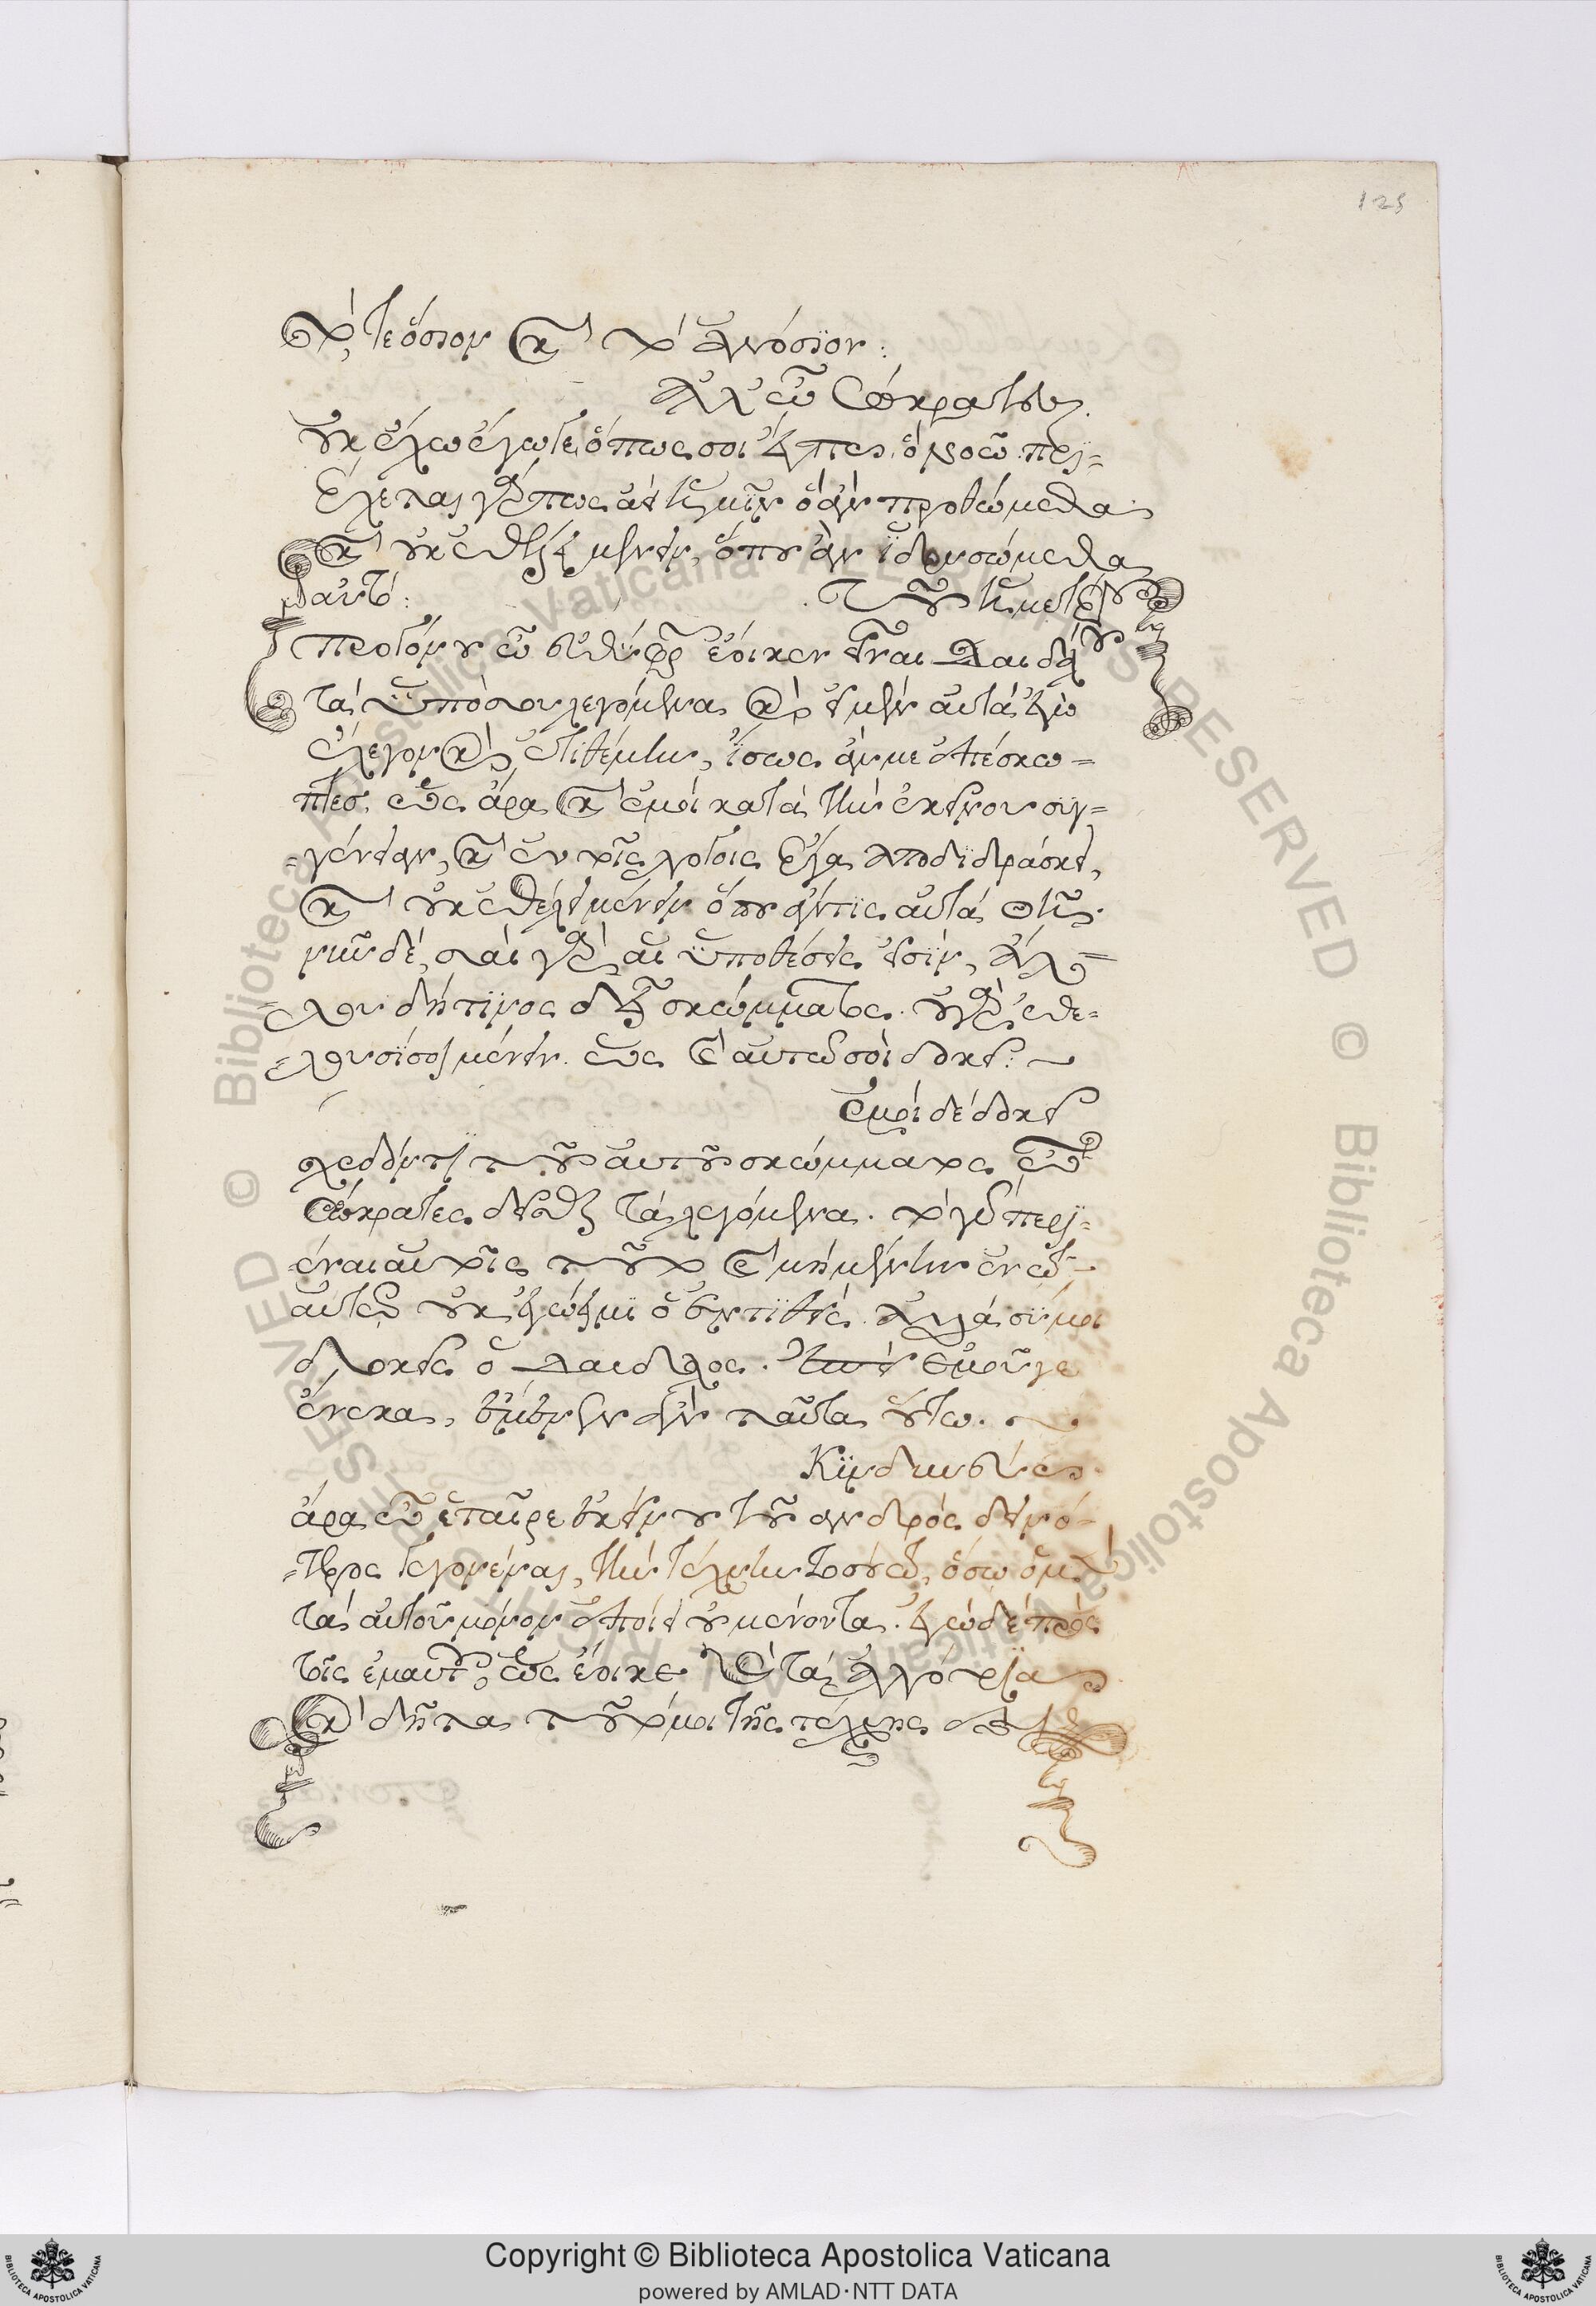 125
τό, τε ὅσιον καὶ τὸ ἀνόσιον:
Ἀλλ' ὦ Σώκρατες
οὐκ ἔχω ἔγωγε ὅπως σοι εἴπω ὃ νοῶ. περι-
έρχεται γάρ πως ἀεὶ ἡμῖν ὃ ἂν προθώμεθα
καὶ οὐκ ἐθέλει μένειν, ὅπου ἂν ἱδρυσώμεθα
αὐτό:
Τοῦ ἡμετέρου
προγόνου ὦ Εὐθύφρον ἔοικεν εἶναι Δαιδάλου
τὰ ὑπὸ σου λεγόμενα καὶ εἰ μὲν αὐτὰ ἐγὼ
ἔλεγον καὶ ἐτιθέμην, ἴσως ἄν με ἐπέσκω-
πτες. ὡς ἄρα καὶ ἐμοὶ κατὰ τὴν ἐκείνου συγ-
γένειαν, τὰ ἐν τοῖς λόγοις ἔργα ἀποδιδράσκει,
καὶ οὐκ ἐθέλει μένειν ὅπου ἄν τις αὐτὰ θῇ.
νῦν δέ, σαὶ γὰρ αἱ ὑποθέσεις εἰσίν, ἄλ-
λου δή τινος δεῖ σκώμματος. οὐ γὰρ ἐθέ-
λουσι σοὶ μένειν. ὡς καὶ αὐτῷ σοὶ δοκεῖ:
Ἐμοὶ δὲ δοκεῖ
σχεδόν τι τοῦ αὐτοῦ σκώμματος ὦ
Σώκρατες δεῖσθαι τὰ λεγόμενα. τὸ γὰρ περι-
ιέναι αὐτοῖς τοῦτο καὶ μὴ μένειν ἐν τῷ
αὐτῷ οὐκ ἐγώ εἰμι ὁ ἐντιθείς. ἀλλὰ σύ μοι
δοκεῖς ὁ Δαίδαλος. ἐμοῦ γε
ἕνεκα, ἔμενεν ἂν ταῦτα οὕτω.
Κινδυνεύω
ἄρα ὦ ἑταῖρε ἐκείνου τοῦ ἀνδρὸς δεινό-
τερος γεγονέναι, τὴν τέχνην τοσούτῳ, ὅσῳ ὁ μὲν
τὰ αὑτοῦ μόνον ἐποίει οὐ μένοντα. ἐγὼ δὲ πρὸς
τοῖς ἐμαυτοῦ, ὡς ἔοικε καὶ τὰ ἀλλότρια
καὶ δῆτα τοῦτό μοι τῆς τέχνης